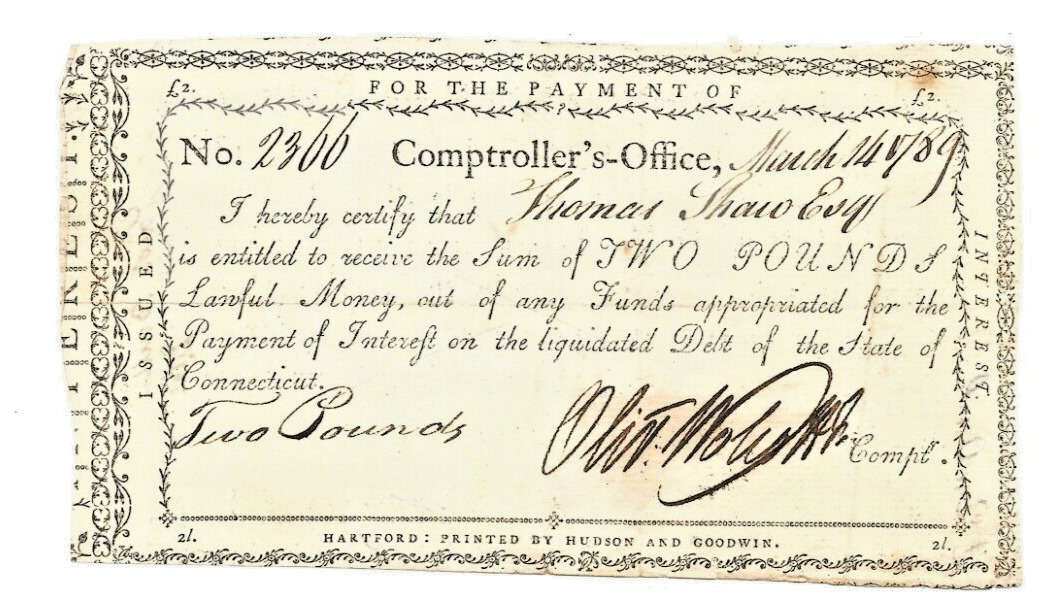 £2. FOR THE PAYMENT OF £2.
No. 2366 Comptroller's-Office, March 14 1789
I hereby certify that Thomas Shaw Esq
is entitled to receive the Sum of TWO POUNDS
Lawful Money, out of any Funds appropriated for the
Payment of Intereſt on the liquidated Debt of the State of
Connecticut.
Two Pounds Oliv. Wolcott Jr. Compt.r
2l. HARTFORD: PRINTED BY HUDSON AND GOODWIN. 2l.
ISSUED
INTEREST.